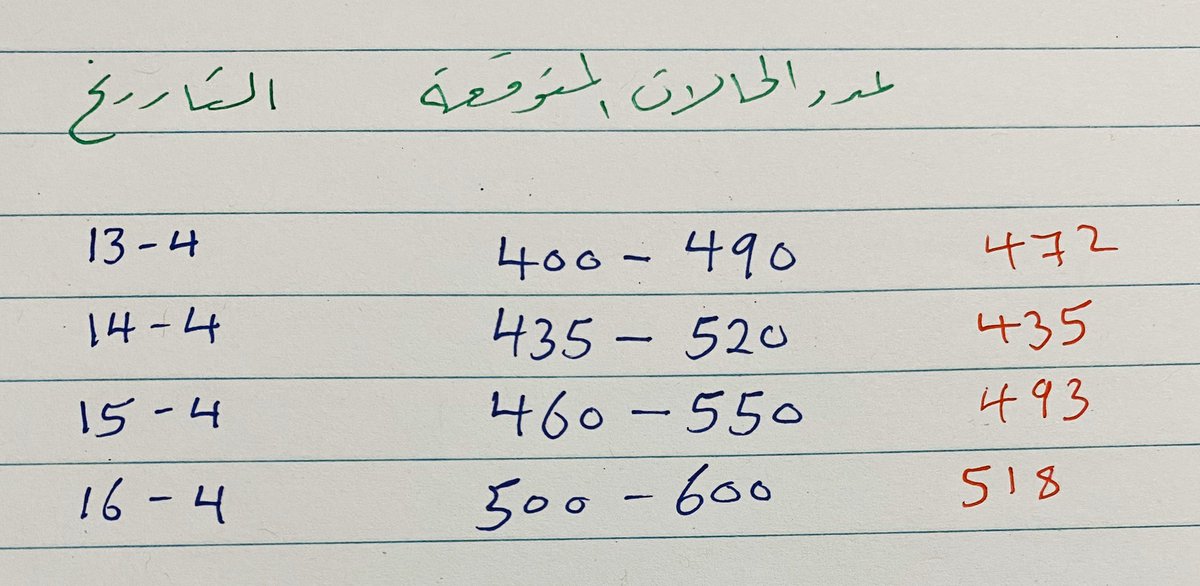 التاريخ عدد الحالات المتوقعة
13-4 400 - 490 472
14-4 435 - 520 435
15-4 460 - 550 493
16-4 500 - 600 518